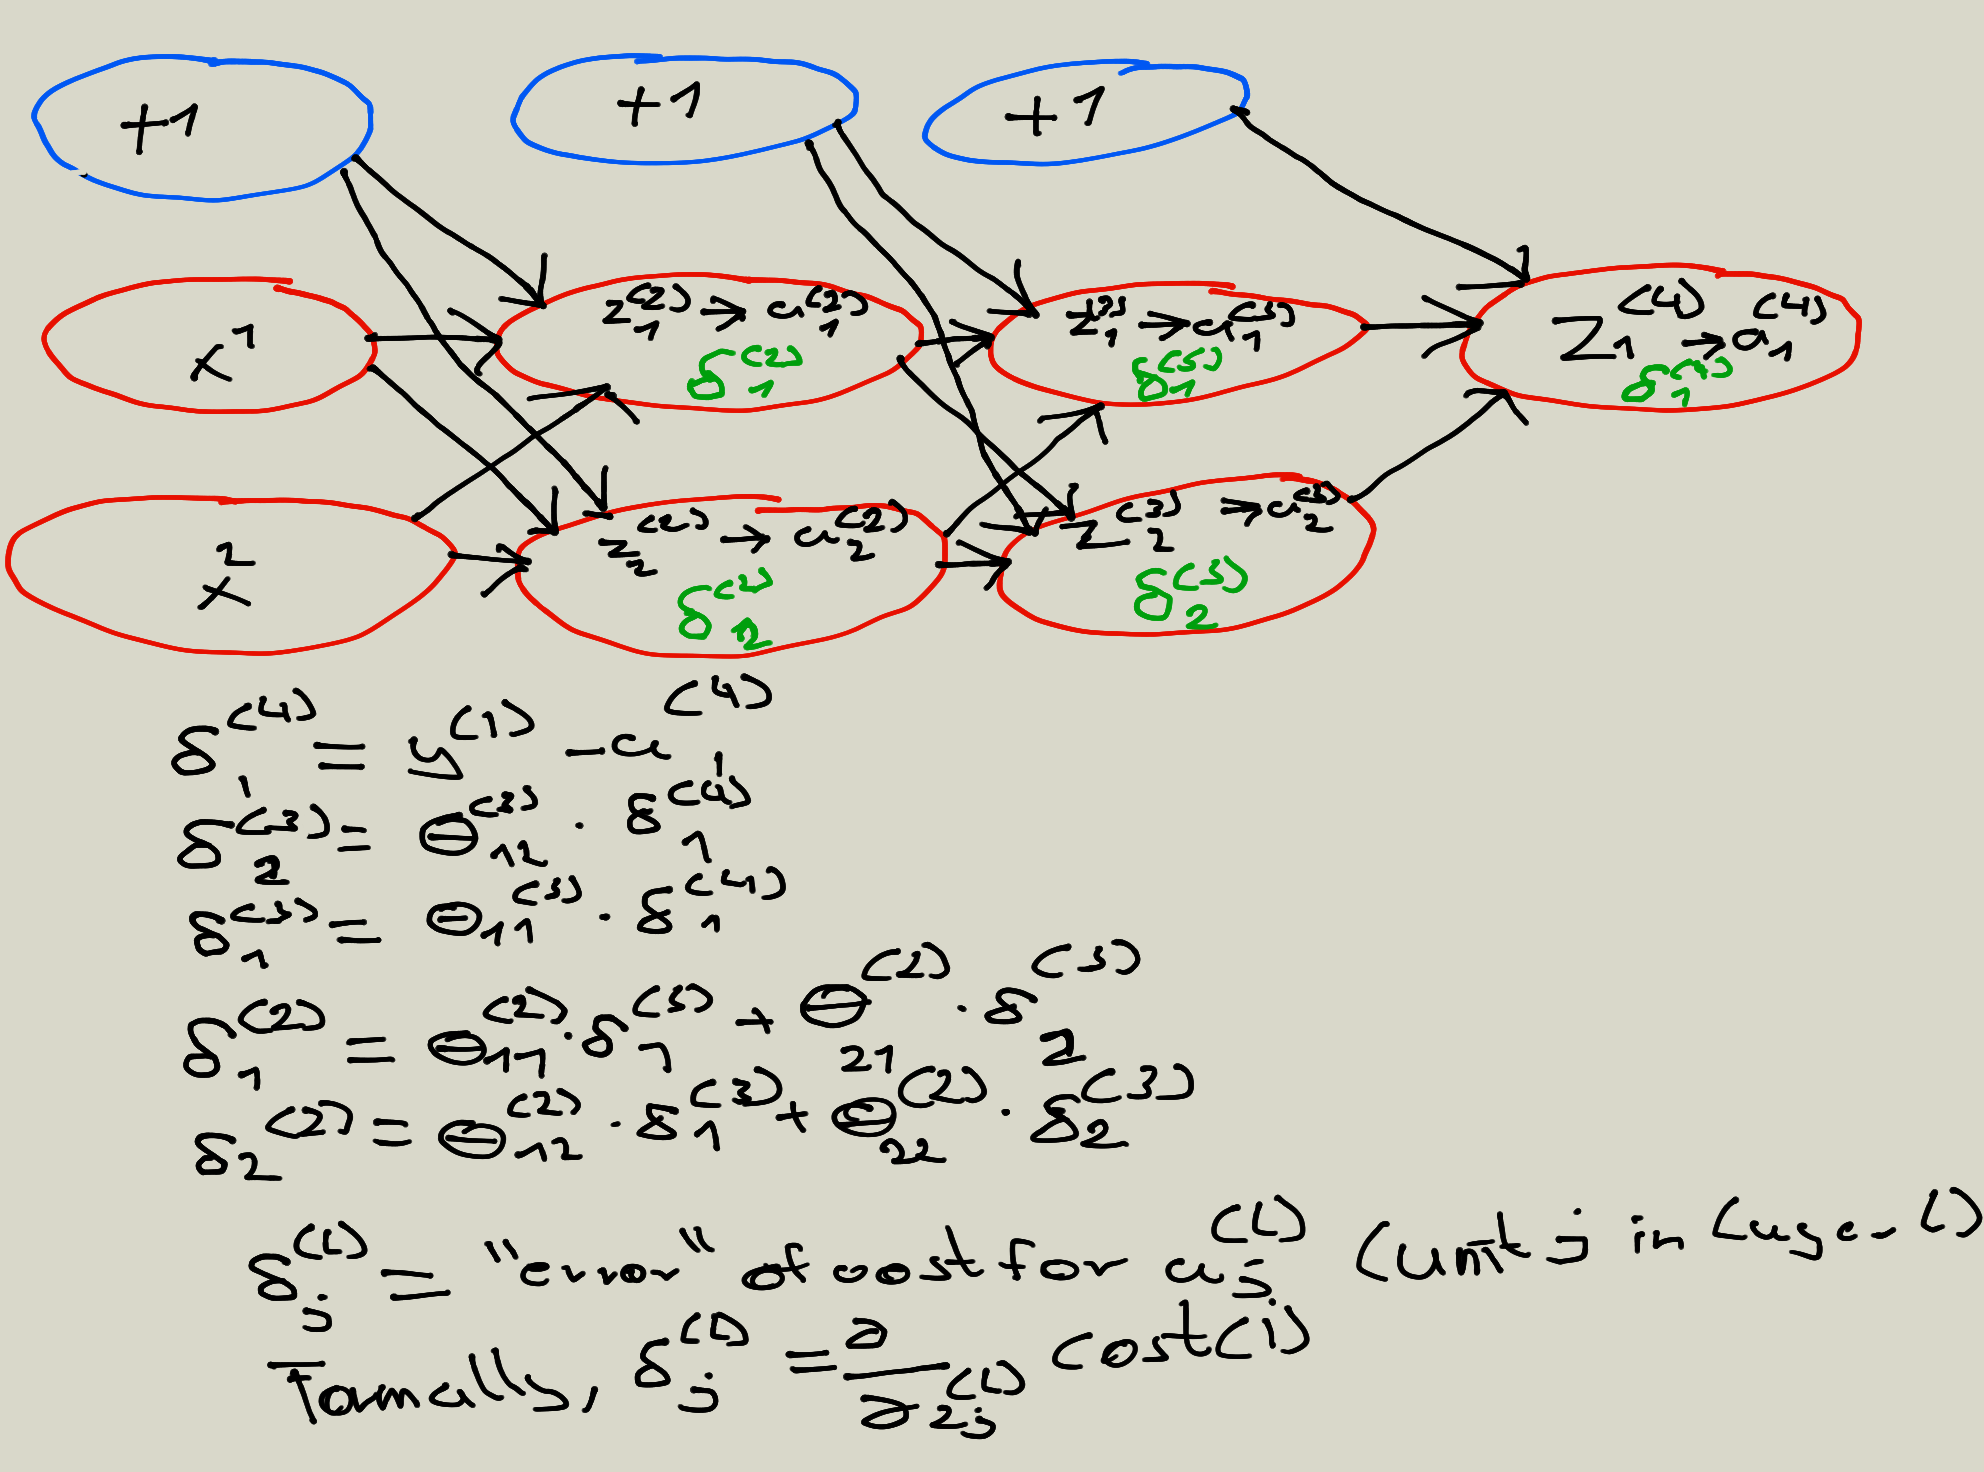 +1 +1 +1
x1 z1(2) → a1(2) z1(3) → a1(3) z1(4) → a1(4)
δ1(2) δ1(3) δ1(4)
x2 z2(2) → a2(2) z2(3) → a2(3)
δ2(2) δ2(3)
δ1(4) = y(1) - a1(4)
δ2(3) = Θ12(3) · δ1(4)
δ1(3) = Θ11(3) · δ1(4)
δ1(2) = Θ11(2) · δ1(3) + Θ21(2) · δ2(3)
δ2(2) = Θ12(2) · δ1(3) + Θ22(2) · δ2(3)
δj(l) = "error" of cost for aj(l) (unit j in layer l)
Formally, δj(l) = ∂/∂zj(l) cost(i)